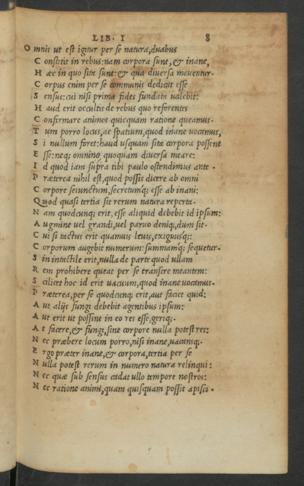 LIB. I 8
O mnis ut est igitur per se natura, duabus
C onsistit in rebus: nam corpora sunt, & inane,
H æc in quo sita sunt: & qua diversa moventur.
C orpus enim per se communis dedicat esse
S ensus: cui nisi prima fides fundata valebit:
H aud erit occultis de rebus quo referentes
C onfirmare animos quicquam ratione queamus.
T um porro locus, ac spatium, quod inane vocamus,
S i nullum foret: haud usquam sita corpora possent
E sse: neq; omnino quoquam diversa meare:
I d quod iam supra tibi paulo ostendimus ante.
P ræterea nihil est, quod possis dicere ab omni
C orpore seiunctum, secretumq; esse ab inani:
Q uod quasi tertia sit rerum natura reperta.
N am quodcunq; erit, esse aliquid debebit id ipsum:
A ugmine vel grandi, vel parvo deniq;, dum sit.
C ui si tactus erit quamvis levis, exiguusq;:
C orporum augebit numerum: summamq; sequetur.
S in intactile erit, nulla de parte quod ullam
R em prohibere queat per se transire meantem:
S cilicet hoc id erit vacuum, quod inane vocamus.
P ræterea, per se quodcunq; erit, aut faciet quid:
A ut alijs fungi debebit agentibus ipsum:
A ut erit ut possint in eo res esse, geriq;.
A t facere, & fungi, sine corpore nulla potest res:
N ec præbere locum porro, nisi inane, vacansq;.
E rgo præter inane, & corpora, tertia per se
N ulla potest rerum in numero natura relinqui:
N ec quæ sub sensus cadat ullo tempore nostros:
N ec ratione animi, quam quisquam possit apisci.